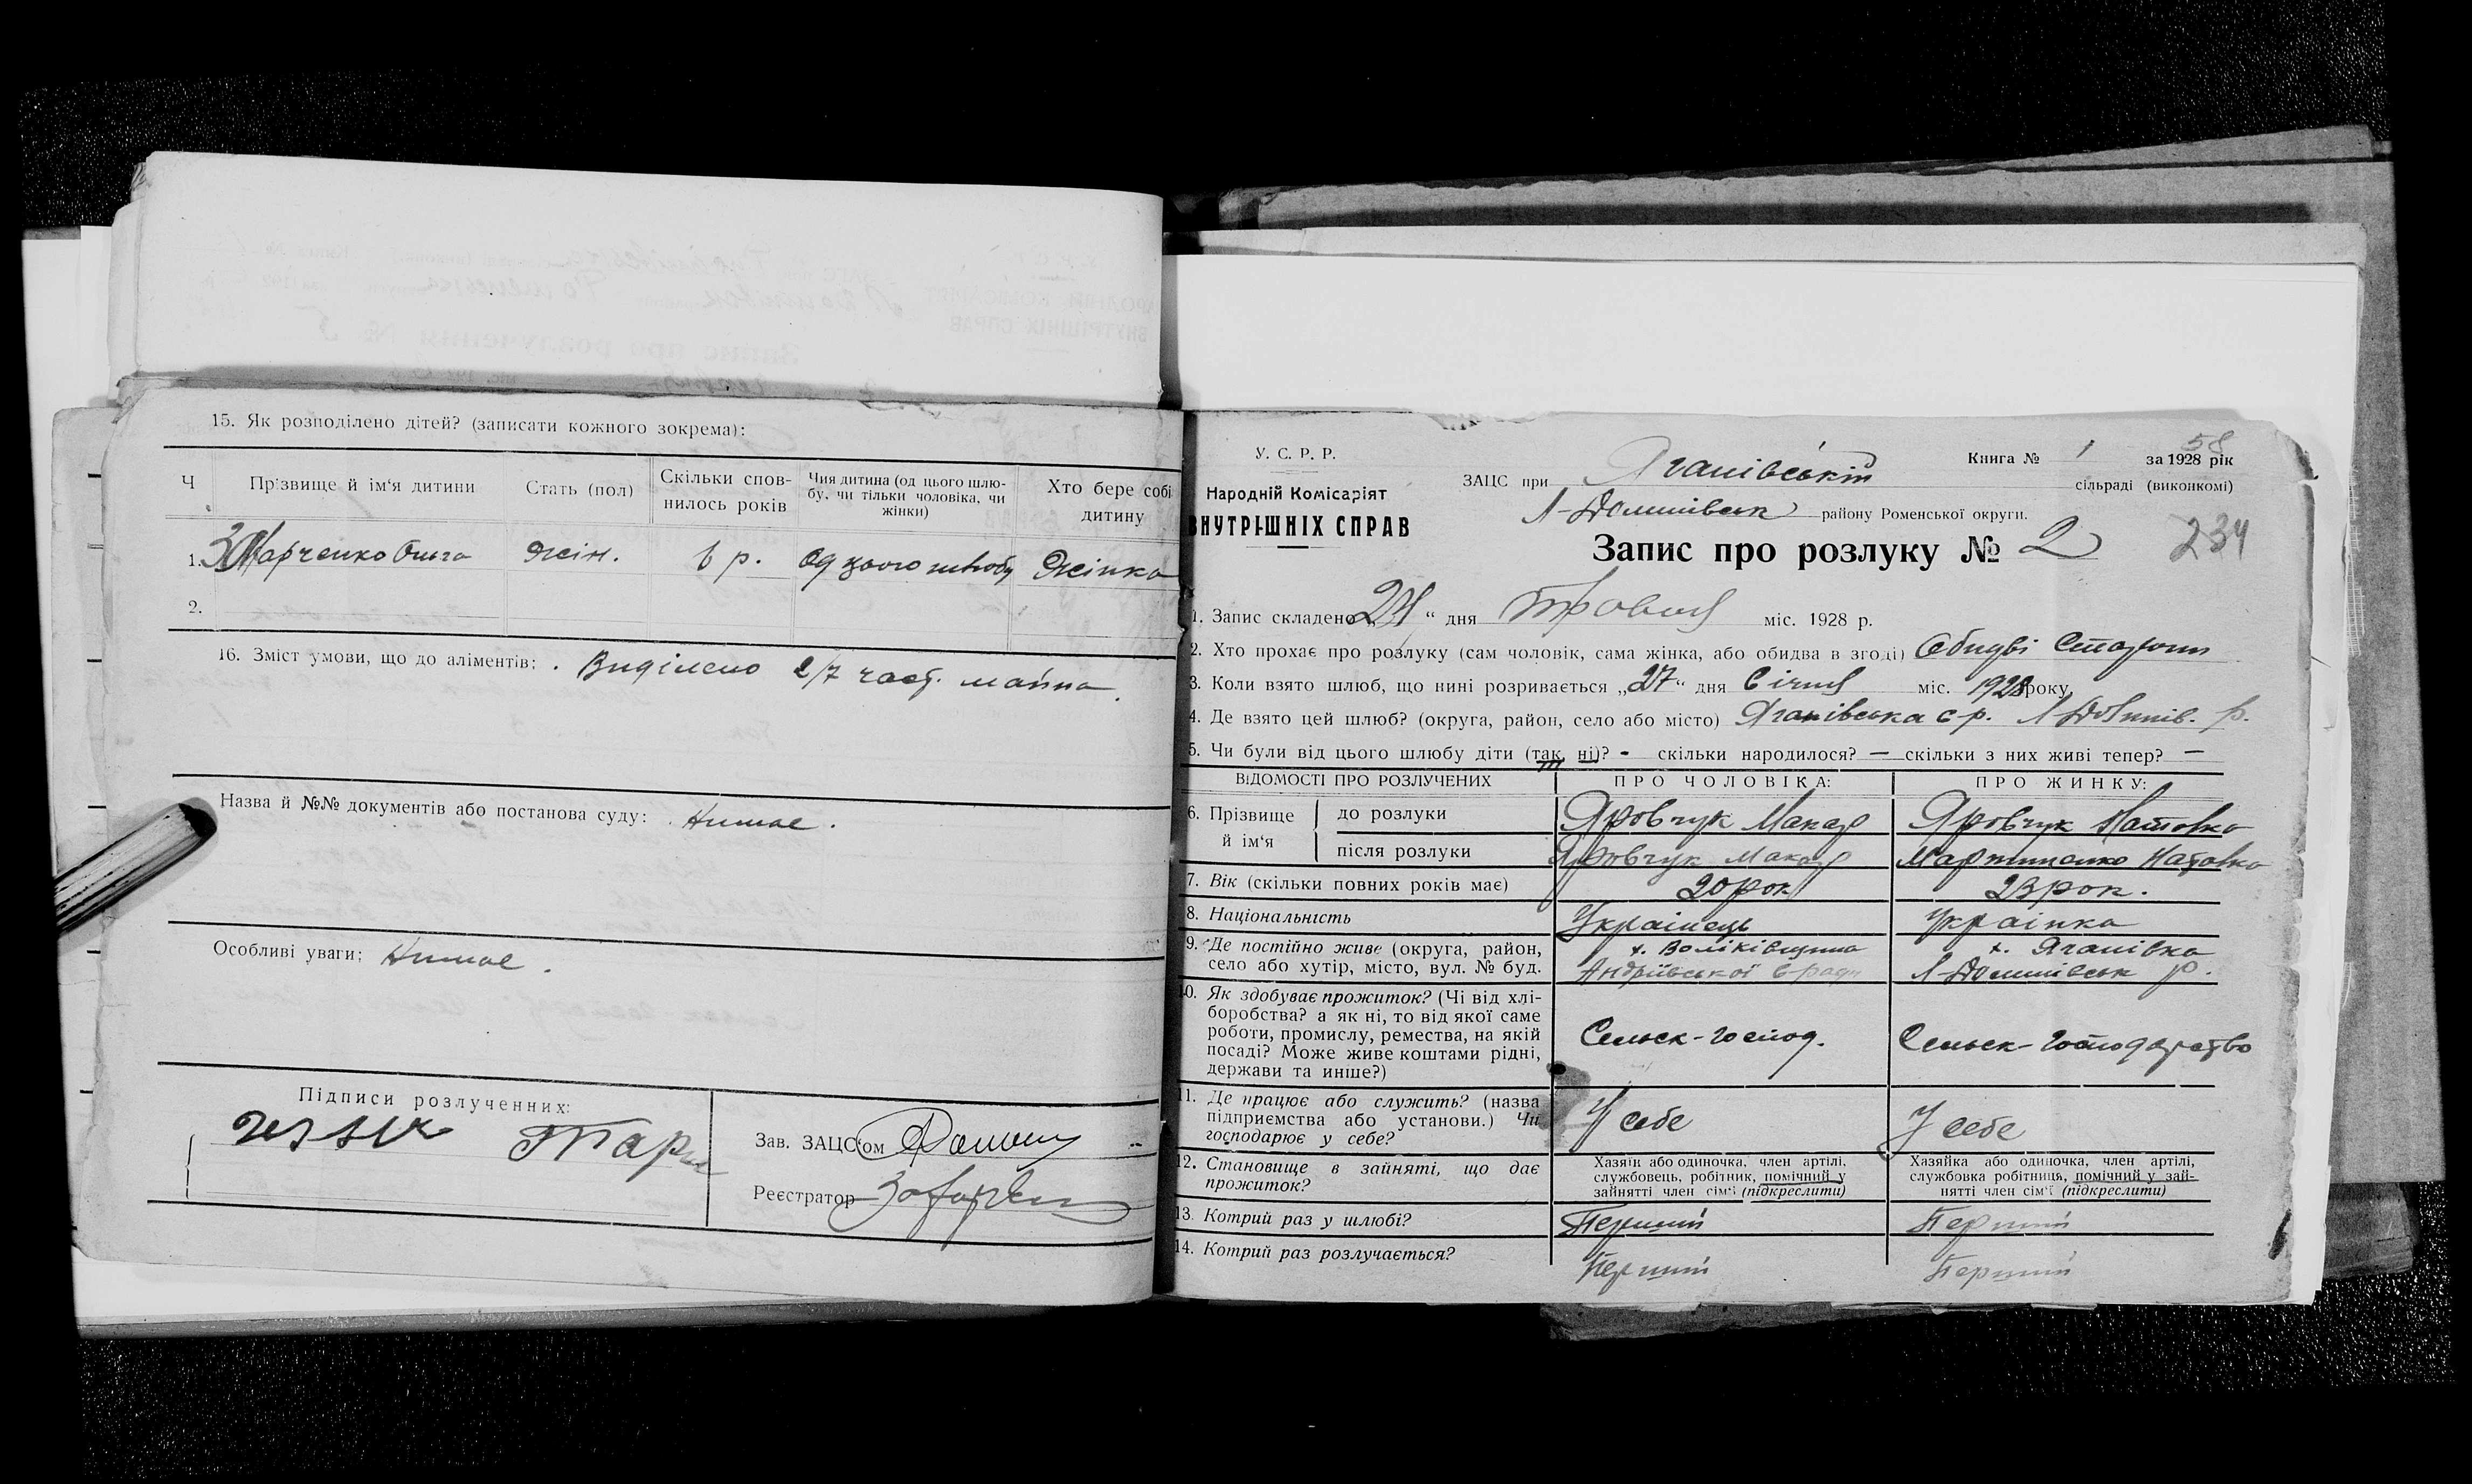 15. Як розподілено дітей? (записати кожного зокрема):
Ч Прізвище й ім'я дитини Стать (пол) Скільки сповнилось років Чия дитина (од цього шлюбу, чи тільки чоловіка, чи жінки) Хто бере собі дитину
1. Харченко Ольга жін. 6 р. Од цього шлюбу Жінка
2.
16. Зміст умови, що до аліментів: Виділено 2/7 част. майна.
Назва й №№ документів або постанова суду: Нимає.
Особливі уваги: Нимає.
Підписи розлученних:
Зав. ЗАЦС'ом
Реєстратор
У. С. Р. Р.
Народній Комісаріят
ВНУТРІШНІХ СПРАВ
Книга № 1 за 1928 рік
58
ЗАЦС при Яганівській сільраді (виконкомі)
району Роменської округи.
Запис про розлуку № 2
234
1. Запис складено „24“ дня Травня міс. 1928 р.
2. Хто прохає про розлуку (сам чоловік, сама жінка, або обидва в згоді) Обидві Сторони
3. Коли взято шлюб, що нині розривається „27“ дня Січня міс. 1928 року.
4. Де взято цей шлюб? (округа, район, село або місто) Яганівська с р.
5. Чи були від цього шлюбу діти (так, ні)? - скільки народилося? — скільки з них живі тепер? —
ВІДОМОСТІ ПРО РОЗЛУЧЕНИХ ПРО ЧОЛОВІКА: ПРО ЖИНКУ:
6. Прізвище й ім'я
до розлуки Яровчук Макар Яровчук
після розлуки Яровчук Макар
7. Вік (скільки повних років має) 20 рок 23 рок.
8. Національність Українець Українка
9. Де постійно живе (округа, район, село або хутір, місто, вул. № буд.
х.
Андріївської с ради
х. Яганівка
10. Як здобуває прожиток? (Чі від хліборобства? а як ні, то від якої саме
роботи, промислу, ремества, на якій
посаді? Може живе коштами рідні,
держави та инше?)
Сельск-господ. Сельск-господарство
11. Де працює або служить? (назва
підприємства або установи.) Чи
господарює у себе?
У себе У себе
12. Становище в зайняті, що дає
прожиток?
Хазяїн або одиночка, член артілі,
службовець, робітник, помічний у
зайнятті член сім'ї (підкреслити)
Хазяйка або одиночка, член артілі,
службовка робітниця, помічний у зай-
нятті член сім'ї (підкреслити)
13. Котрий раз у шлюбі? Перший Перший
14. Котрий раз розлучається? Перший Перший